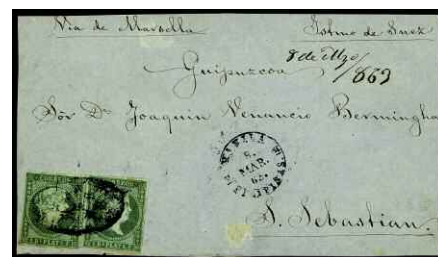 Via de Marsella
Istmo de Suez
8 de Mzo/863
Guipuzcoa
Sor Dn Joaquin Venancio Bermingha
MANILA
8.
MAR.
63.
S. Sebastian.